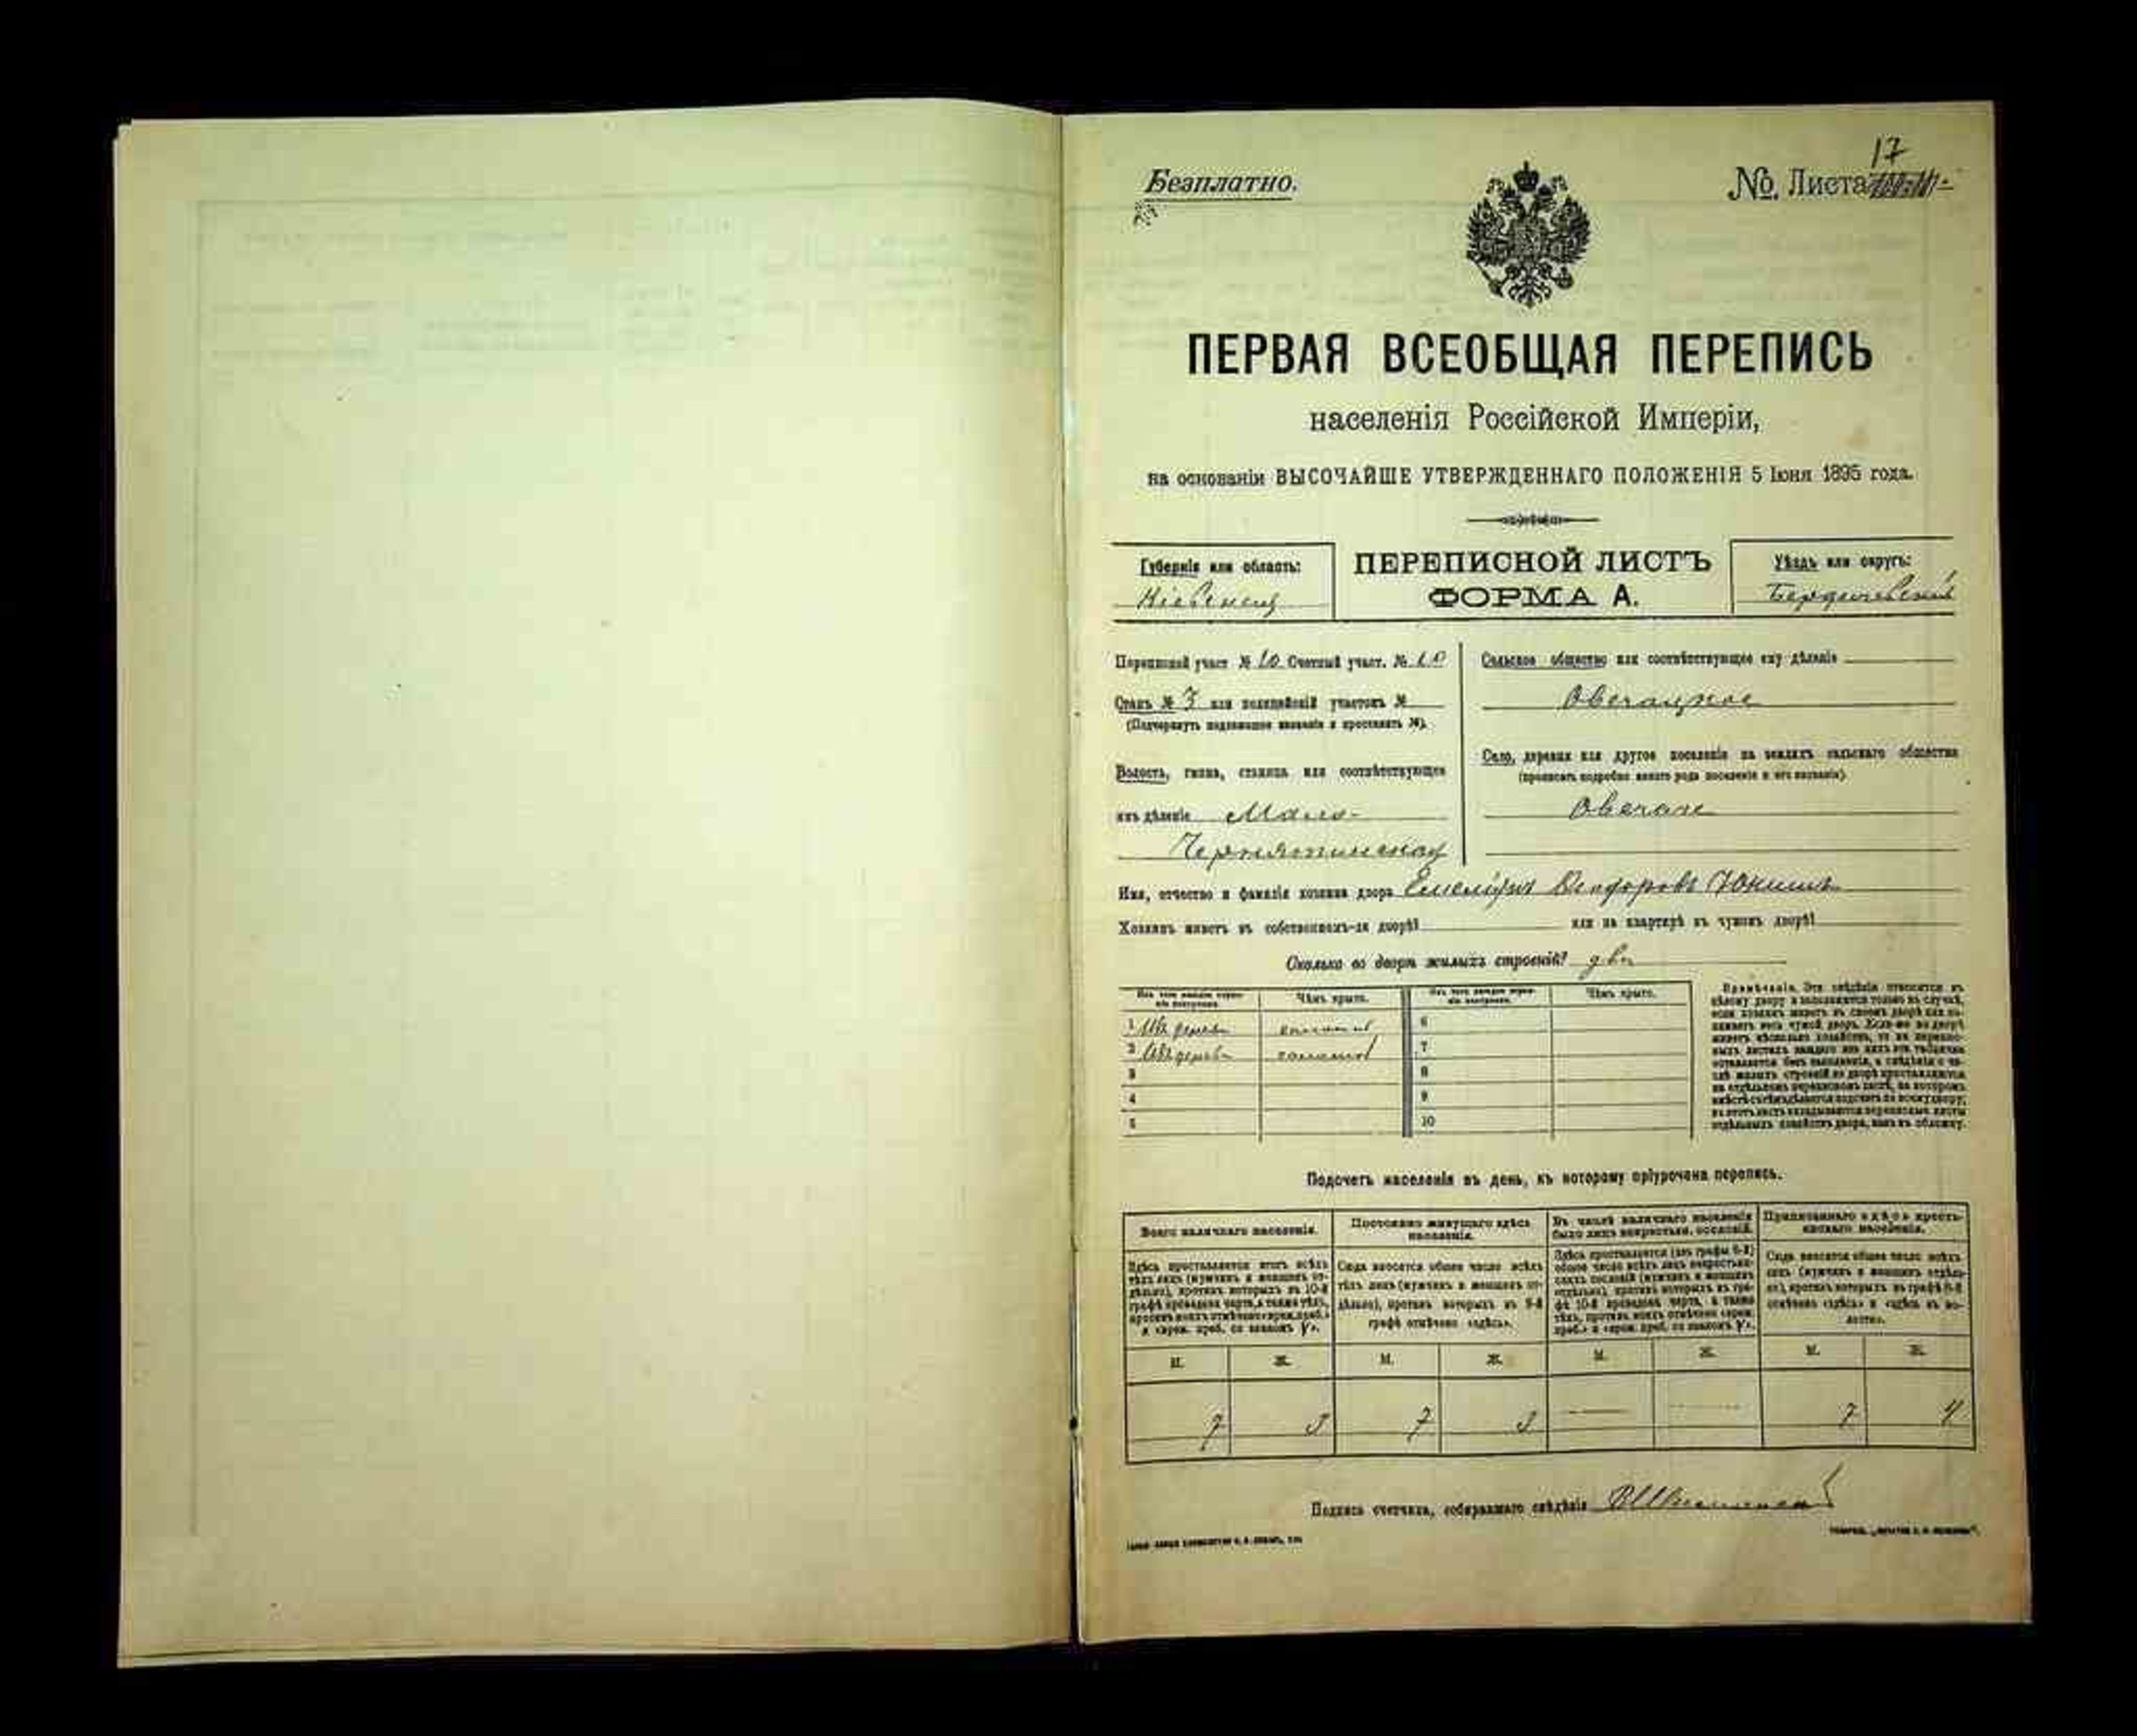 17
Безплатно.
№. Листа
ПЕРВАЯ ВСЕОБЩАЯ ПЕРЕПИСЬ
населенія Россійской Имперіи,
на основаніи ВЫСОЧАЙШЕ УТВЕРЖДЕННАГО ПОЛОЖЕНІЯ 5 Іюня 1895 года.
Губернія или область:
Кіевская
ПЕРЕПИСНОЙ ЛИСТЪ
ФОРМА А.
Уѣздъ или округъ:
Бердичевскій
Переписной участ. № 10 Счетный участ. № 10
Станъ № 3 или полицейскій участокъ №
(Подчеркнуть подлежащее названіе и проставить №).
Волость, гмина, станица или соотвѣтствующее
имъ дѣленіе Мало-
Чернятинская
Сельское общество или соотвѣтствующее ему дѣленіе
Овечацкое
Село, деревня или другое поселеніе на земляхъ сельскаго общества
(прописать подробно какого рода поселеніе и его названіе).
Овечаче
Имя, отчество и фамилія хозяина двора Емеліянъ Феодоровъ
Хозяинъ живетъ въ собственномъ-ли дворѣ? или на квартирѣ въ чужомъ дворѣ?
Сколько во дворѣ жилыхъ строеній? два
Изъ чего каждое строеніе построено.
Чѣмъ крыто.
Изъ чего каждое строеніе построено.
Чѣмъ крыто.
1 Изъ дерева соломой 6
2 Изъ дерева соломой 7
3 8
4 9
5 10
Примѣчаніе. Эти свѣдѣнія относятся къ
цѣлому двору и заполняются только въ случаѣ,
если хозяинъ живетъ въ своемъ дворѣ или за-
нимаетъ весь чужой дворъ. Если-же во дворѣ
живетъ нѣсколько хозяйствъ, то на перепис-
ныхъ листахъ каждаго изъ нихъ эта табличка
оставляется безъ заполненія, а свѣдѣнія о чи-
слѣ жилыхъ строеній во дворѣ проставляются
на отдѣльномъ переписномъ листѣ, на которомъ
вмѣстѣ съ тѣмъ дѣлается подсчетъ по всему двору;
въ этотъ листъ вкладываются переписные листы
отдѣльныхъ хозяйствъ двора, какъ въ обложку.
Подсчетъ населенія въ день, къ которому пріурочена перепись.
Всего наличнаго населенія.
Постоянно живущаго здѣсь
населенія.
Въ числѣ наличнаго населенія
было лицъ некрестьян. сословій.
Приписаннаго здѣсь кресть-
янскаго населенія.
Здѣсь проставляется итогъ всѣхъ
тѣхъ лицъ (мужчинъ и женщинъ от-
дѣльно), противъ которыхъ въ 10-й
графѣ проведена черта, а также тѣхъ,
противъ коихъ отмѣчено «врем. преб.»
и «врем. преб. со знакомъ V».
Сюда вносится общее число всѣхъ
тѣхъ лицъ (мужчинъ и женщинъ от-
дѣльно), противъ которыхъ въ 9-й
графѣ отмѣчено «здѣсь».
Здѣсь проставляется (изъ графы 6-й)
общее число всѣхъ лицъ некрестьян-
скихъ сословій (мужчинъ и женщинъ
отдѣльно), противъ которыхъ въ гра-
фѣ 10-й проведена черта, а также
тѣхъ, противъ коихъ отмѣчено «врем.
преб.» и «врем. преб. со знакомъ V».
Сюда вносится общее число всѣхъ
лицъ (мужчинъ и женщинъ отдѣль-
но), противъ которыхъ въ графѣ 8-й
отмѣчено «здѣсь» и «здѣсь въ во-
лости».
М. Ж. М. Ж. М. Ж. М. Ж.
7 3 7 3 — — 7 4
Подпись счетчика, собиравшаго свѣдѣнія